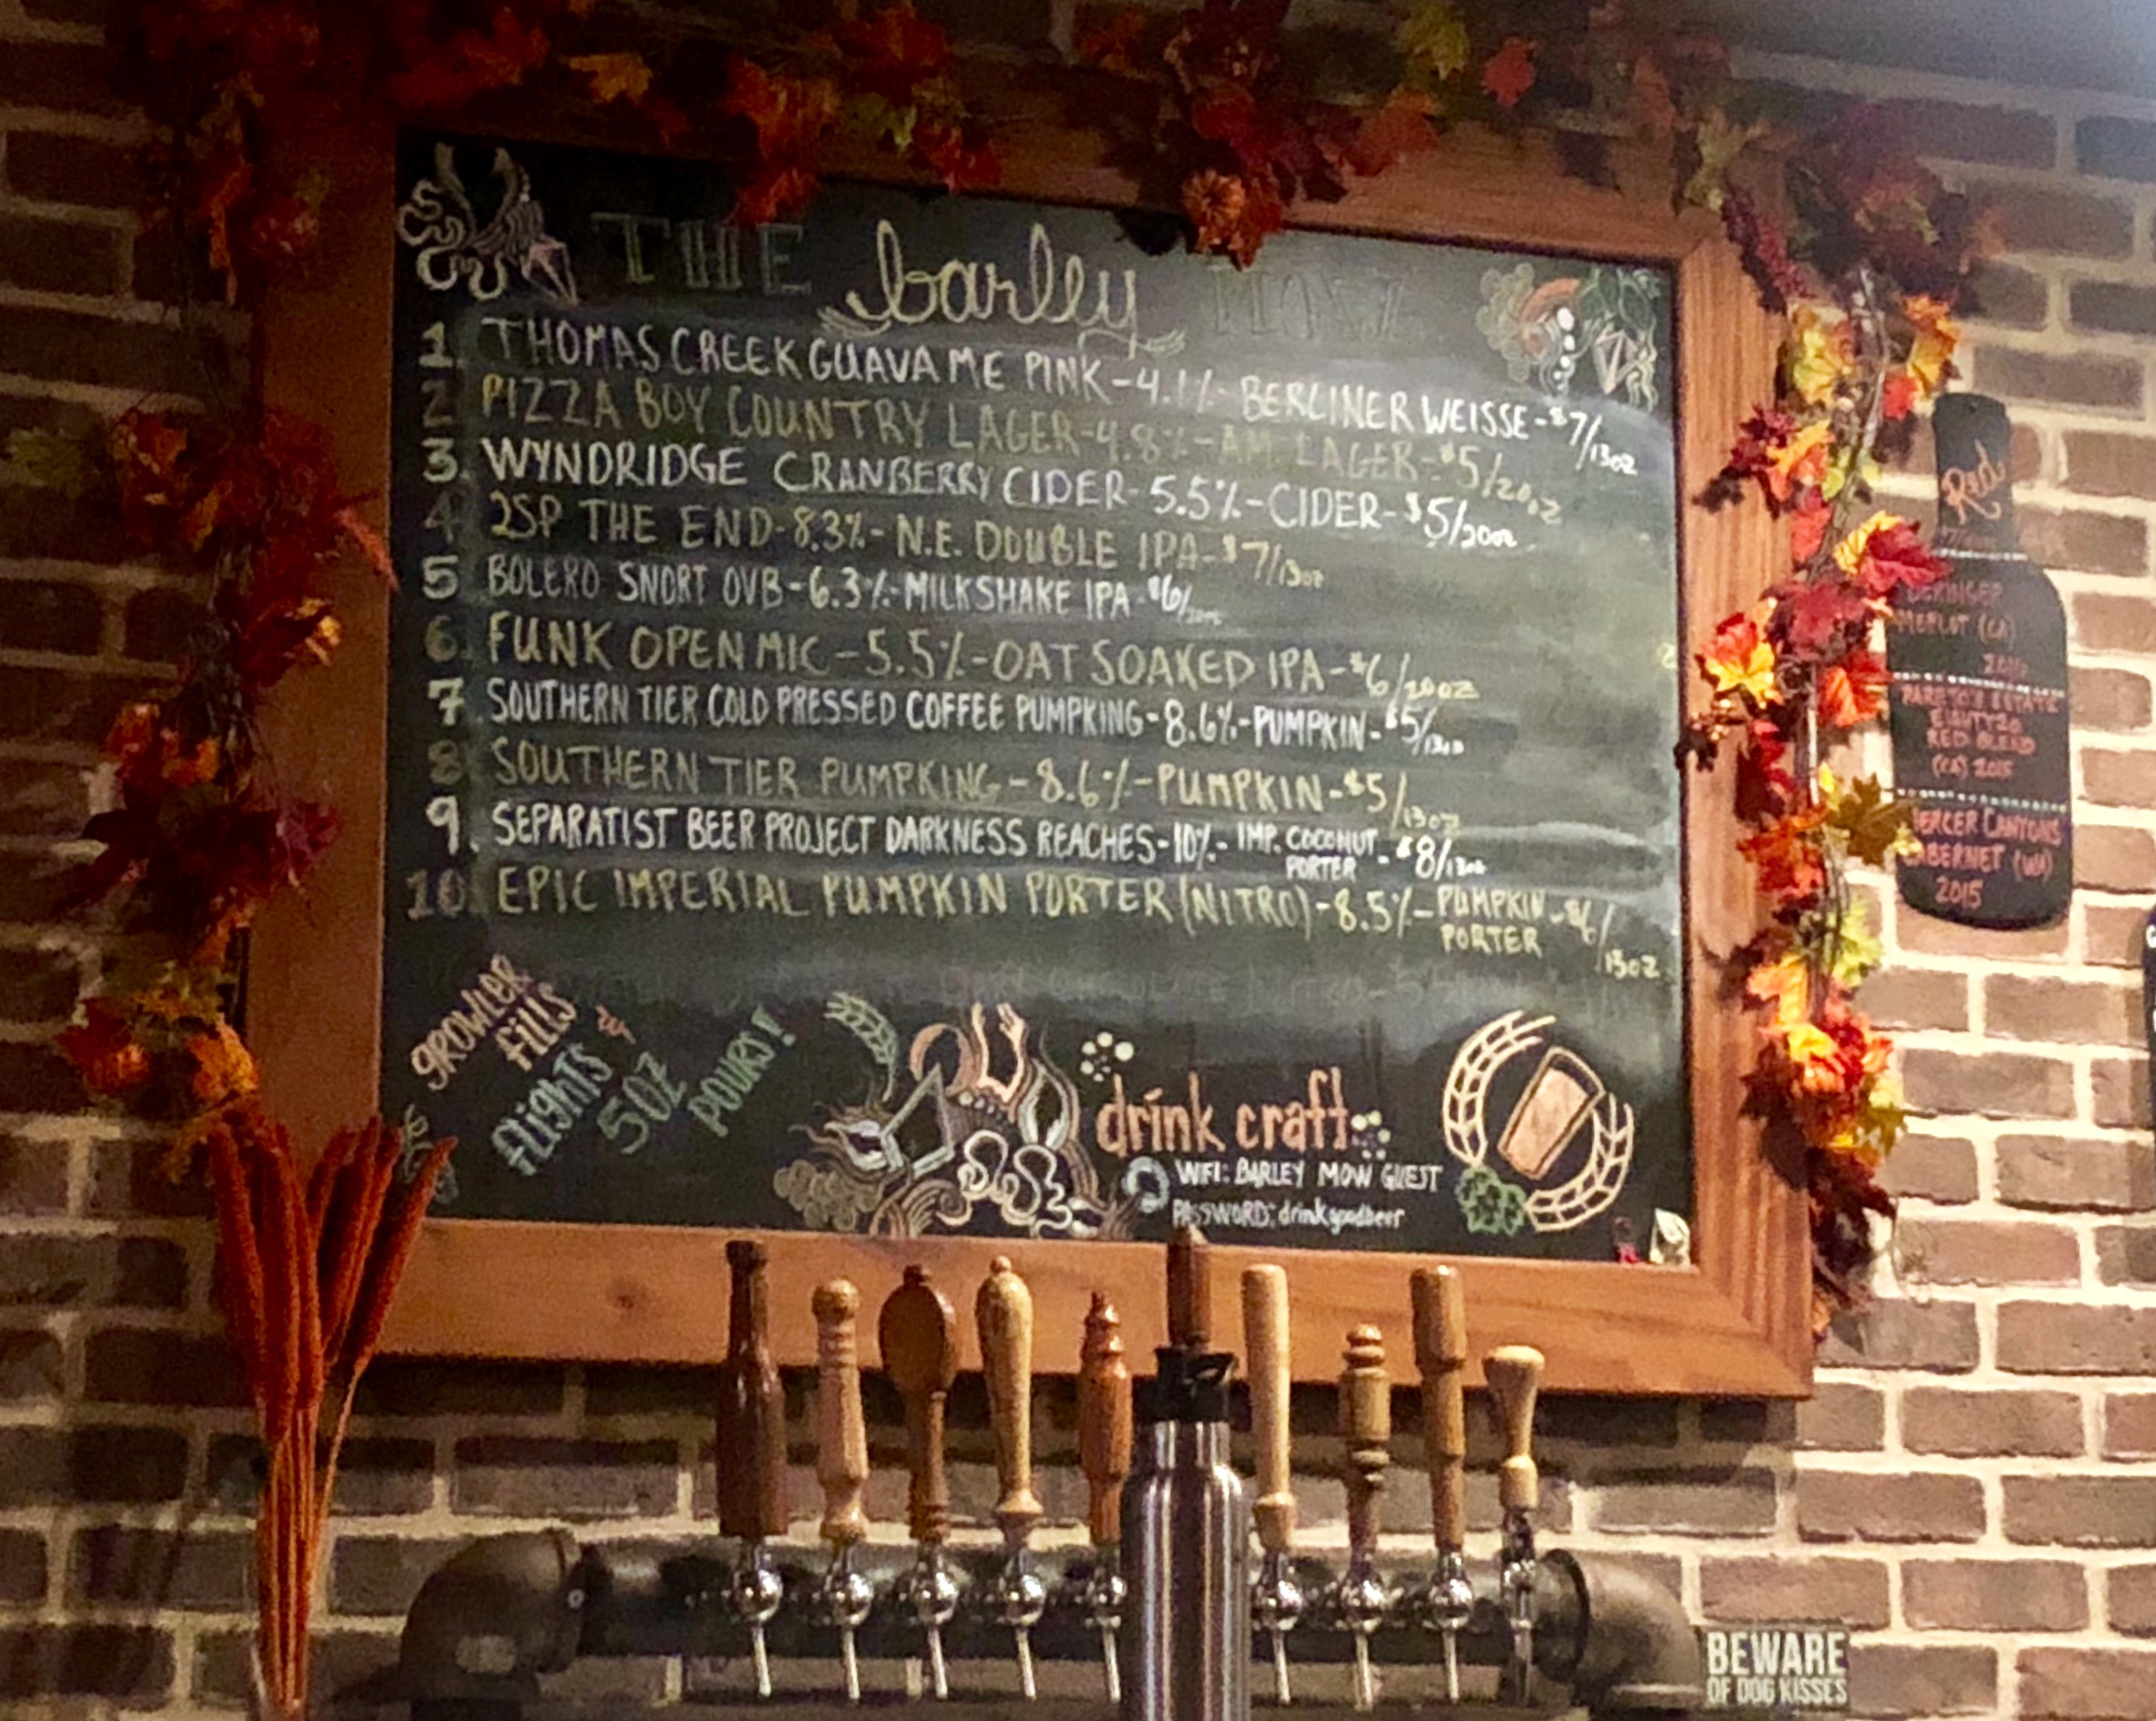 THE barley MOW
1. THOMAS CREEK GUAVA ME PINK - 4.1% - BERLINER WEISSE - $7/13oz
2 PIZZA BOY COUNTRY LAGER - 4.8% - AM. LAGER - $5/20oz
3. WYNDRIDGE CRANBERRY CIDER - 5.5% - CIDER - $5/20oz
4 2SP THE END - 8.3% - N.E. DOUBLE IPA - $7/13oz
5 BOLERO SNORT OVB - 6.3% - MILKSHAKE IPA - $6/20oz
6. FUNK OPEN MIC - 5.5% - OAT SOAKED IPA - $6/20oz
7. SOUTHERN TIER COLD PRESSED COFFEE PUMPKING - 8.6% - PUMPKIN - $5/13oz
8 SOUTHERN TIER PUMPKING - 8.6% - PUMPKIN - $5/13oz
9. SEPARATIST BEER PROJECT DARKNESS REACHES - 10% - IMP. COCONUT PORTER - $8/13oz
10. EPIC IMPERIAL PUMPKIN PORTER (NITRO) - 8.5% - PUMPKIN PORTER - $6/13oz
growler
fills &
flights
5oz
pours!
drink craft
WIFI: BARLEY MOW GUEST
PASSWORD: drinkgoodbeer
Red
BERINGER
MERLOT (CA)
RED BLEND
(CA) 2015
MERCER CANYONS
CABERNET (WA)
2015
BEWARE
OF DOG KISSES